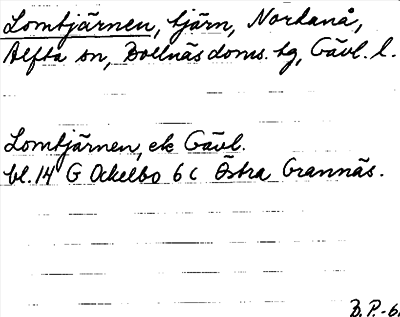 Lomtjärnen, tjärn, Nordanå,
Alfta sn, Bollnäs doms. tg, Gävl. l.
Lomtjärnen, ek Gävl.
bl. 14 G Ockelbo 6 c Östra Grannäs.
B.P.-6